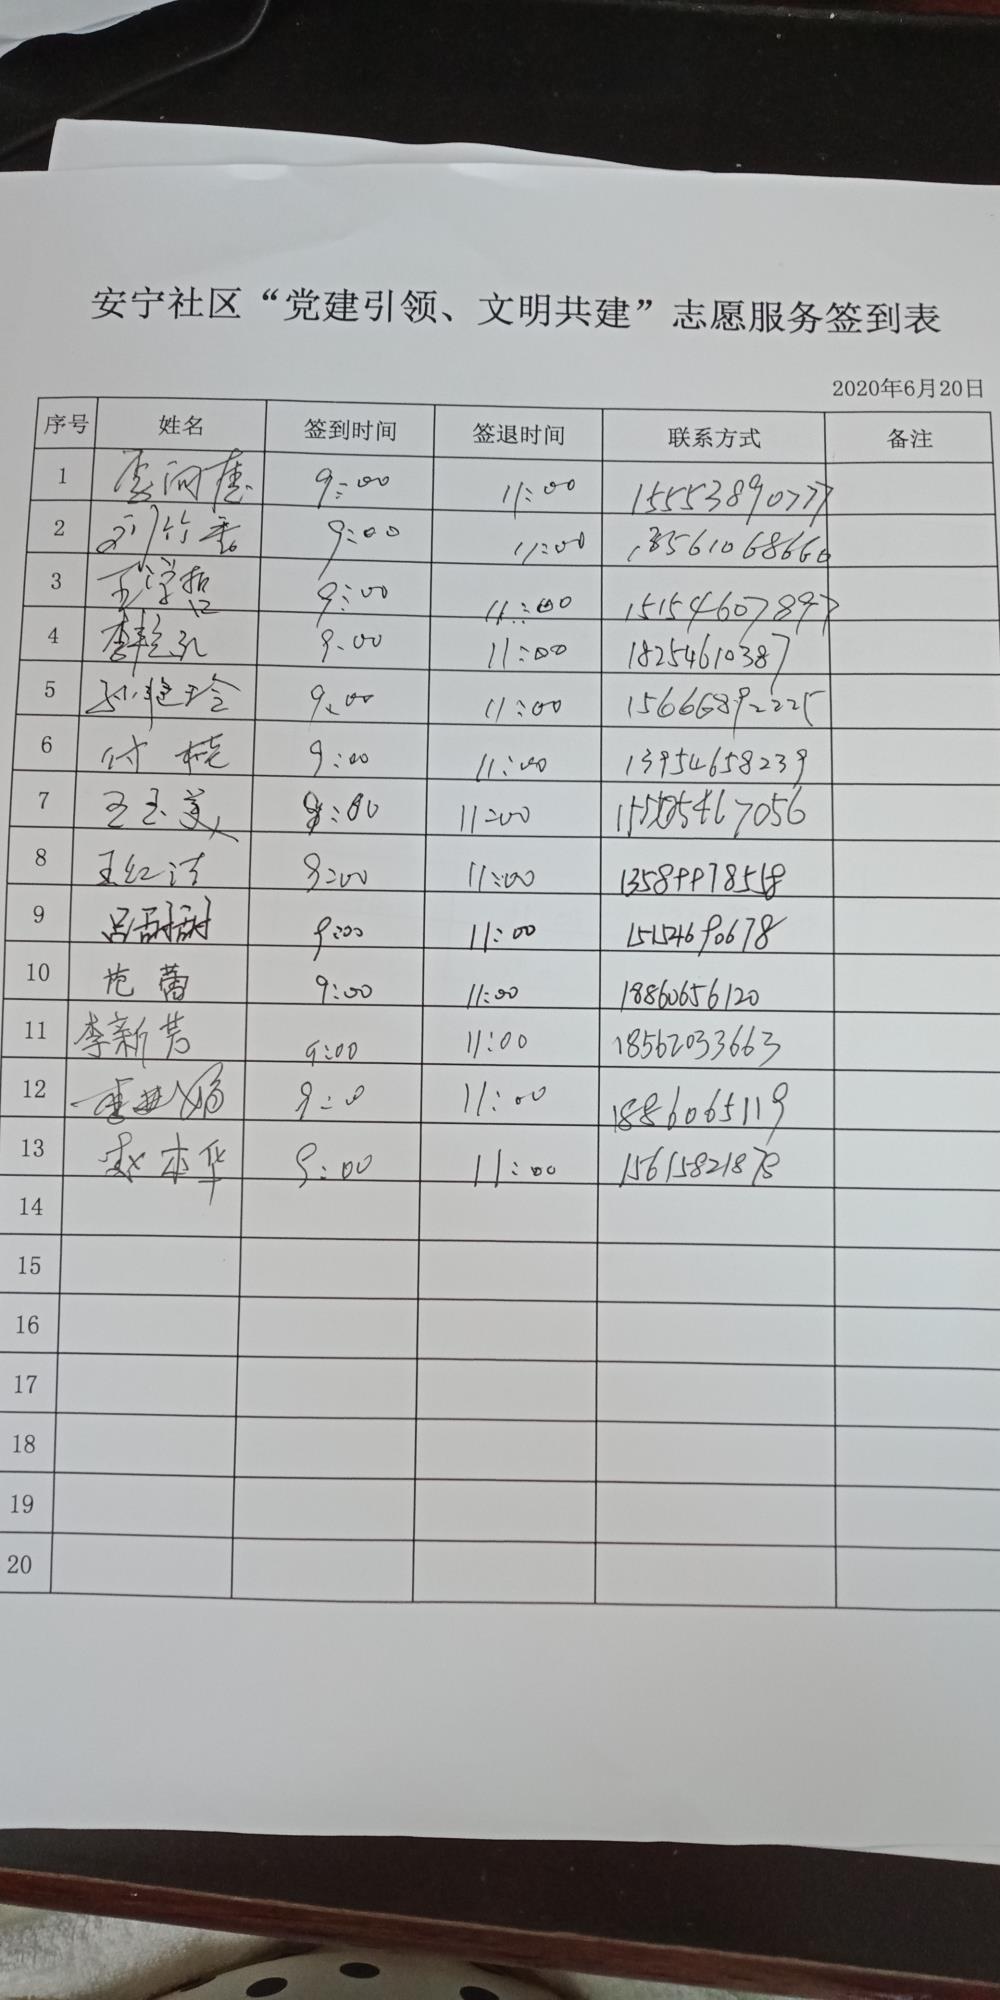 安宁社区“党建引领、文明共建”志愿服务签到表
2020年6月20日
序号 姓名 签到时间 签退时间 联系方式 备注
1 9:00 11:00 15553890777
2 刘竹 9:00 11:00 13561068660
3 王学哲 9:00 11:00 15154607897
4 李艳红 9:00 11:00 18254610387
5 9:00 11:00 15666892225
6 付桂 9:00 11:00 13954658239
7 王玉美 9:00 11:00
8 王红洁 9:00 11:00
9 吕甜甜 9:00 11:00 15124690678
10 范蕾 9:00 11:00 18860656120
11 李新芳 9:00 11:00 18562033663
12 9:00 11:00 1886065119
13 赵本华 9:00 11:00 15615821878
14
15
16
17
18
19
20